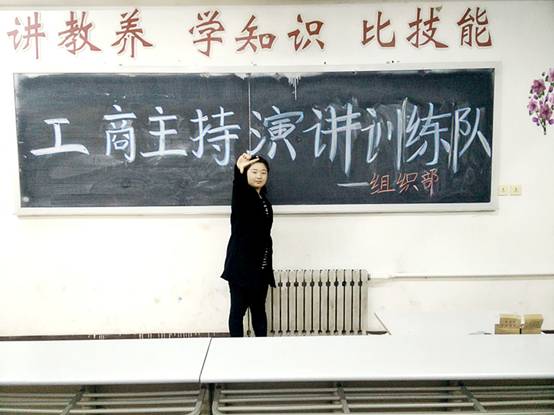 讲教养 学知识 比技能
工商主持演讲训练队
—组织部